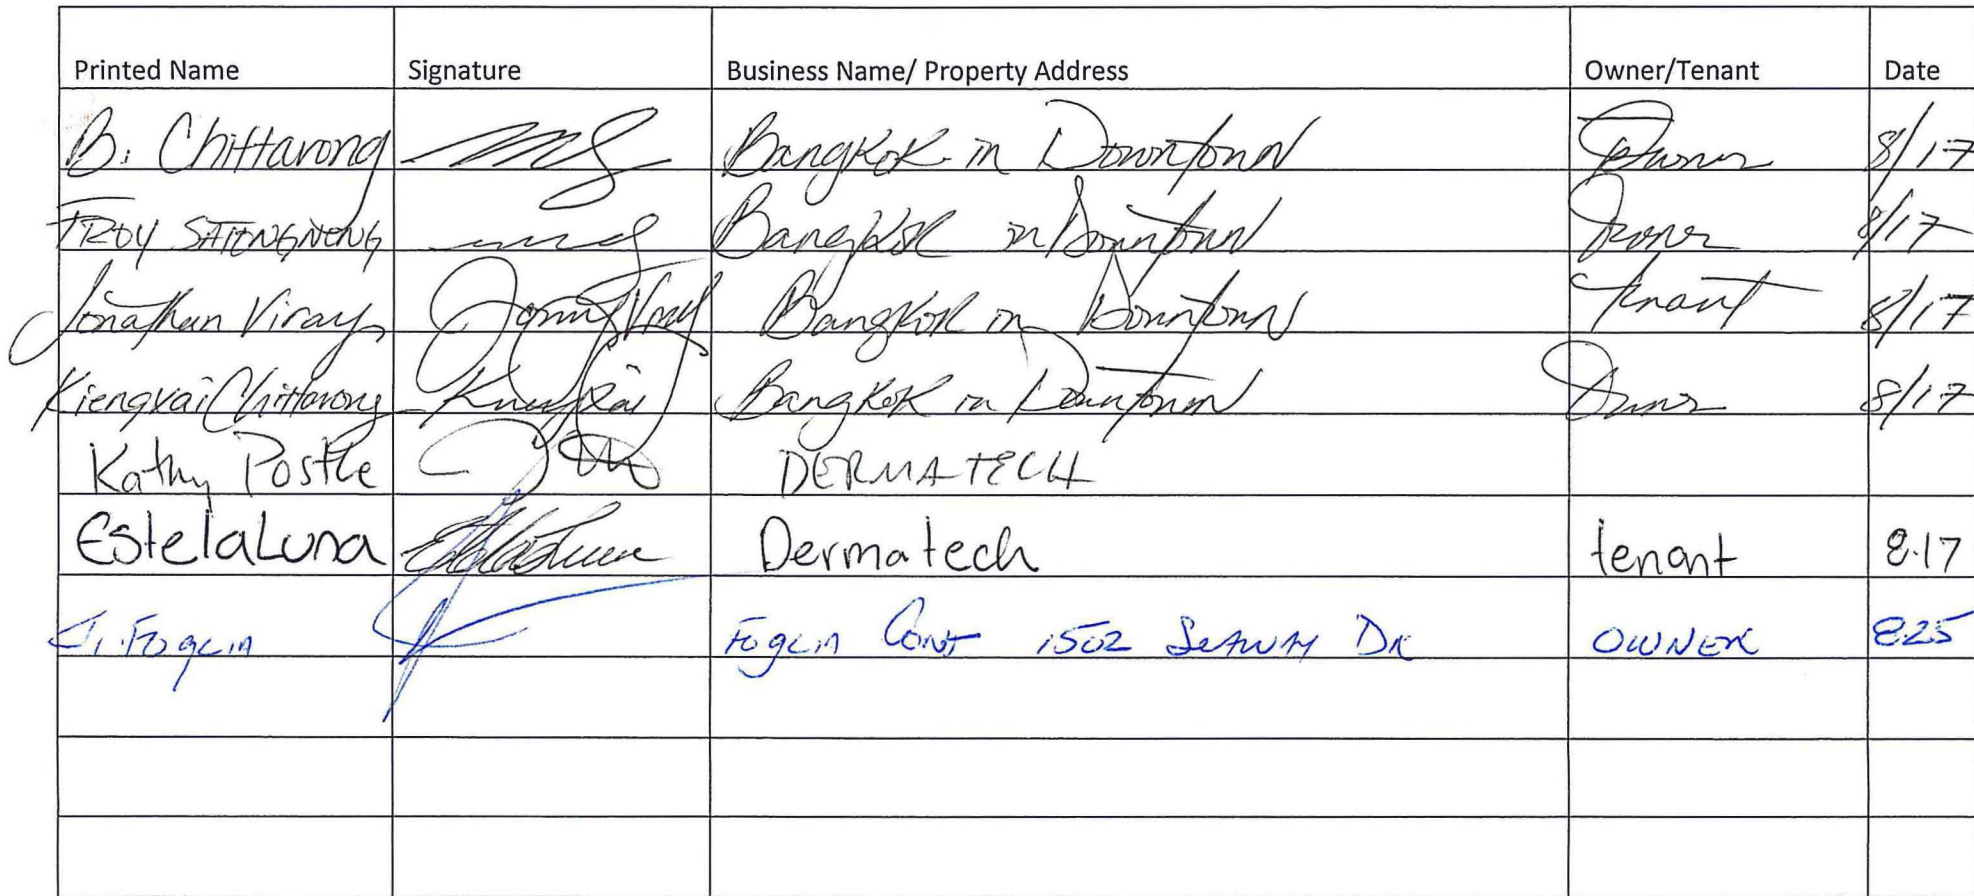 Printed Name Signature Business Name/ Property Address Owner/Tenant Date
B. Chittavong Bangkok in Downtown Owner 8/17
TROY Bangkok in Downtown Owner 8/17
Jonathan Viray Bangkok in Downtown tenant 8/17
Kiengxai Chittavong Kiengxai Bangkok in Downtown Owner 8/17
Kathy Postle DERMATECH
Estela Luna Estela Luna Dermatech tenant 8.17
J. Foglia Foglia Cont 1502 Seaway Dr OWNER 8.25